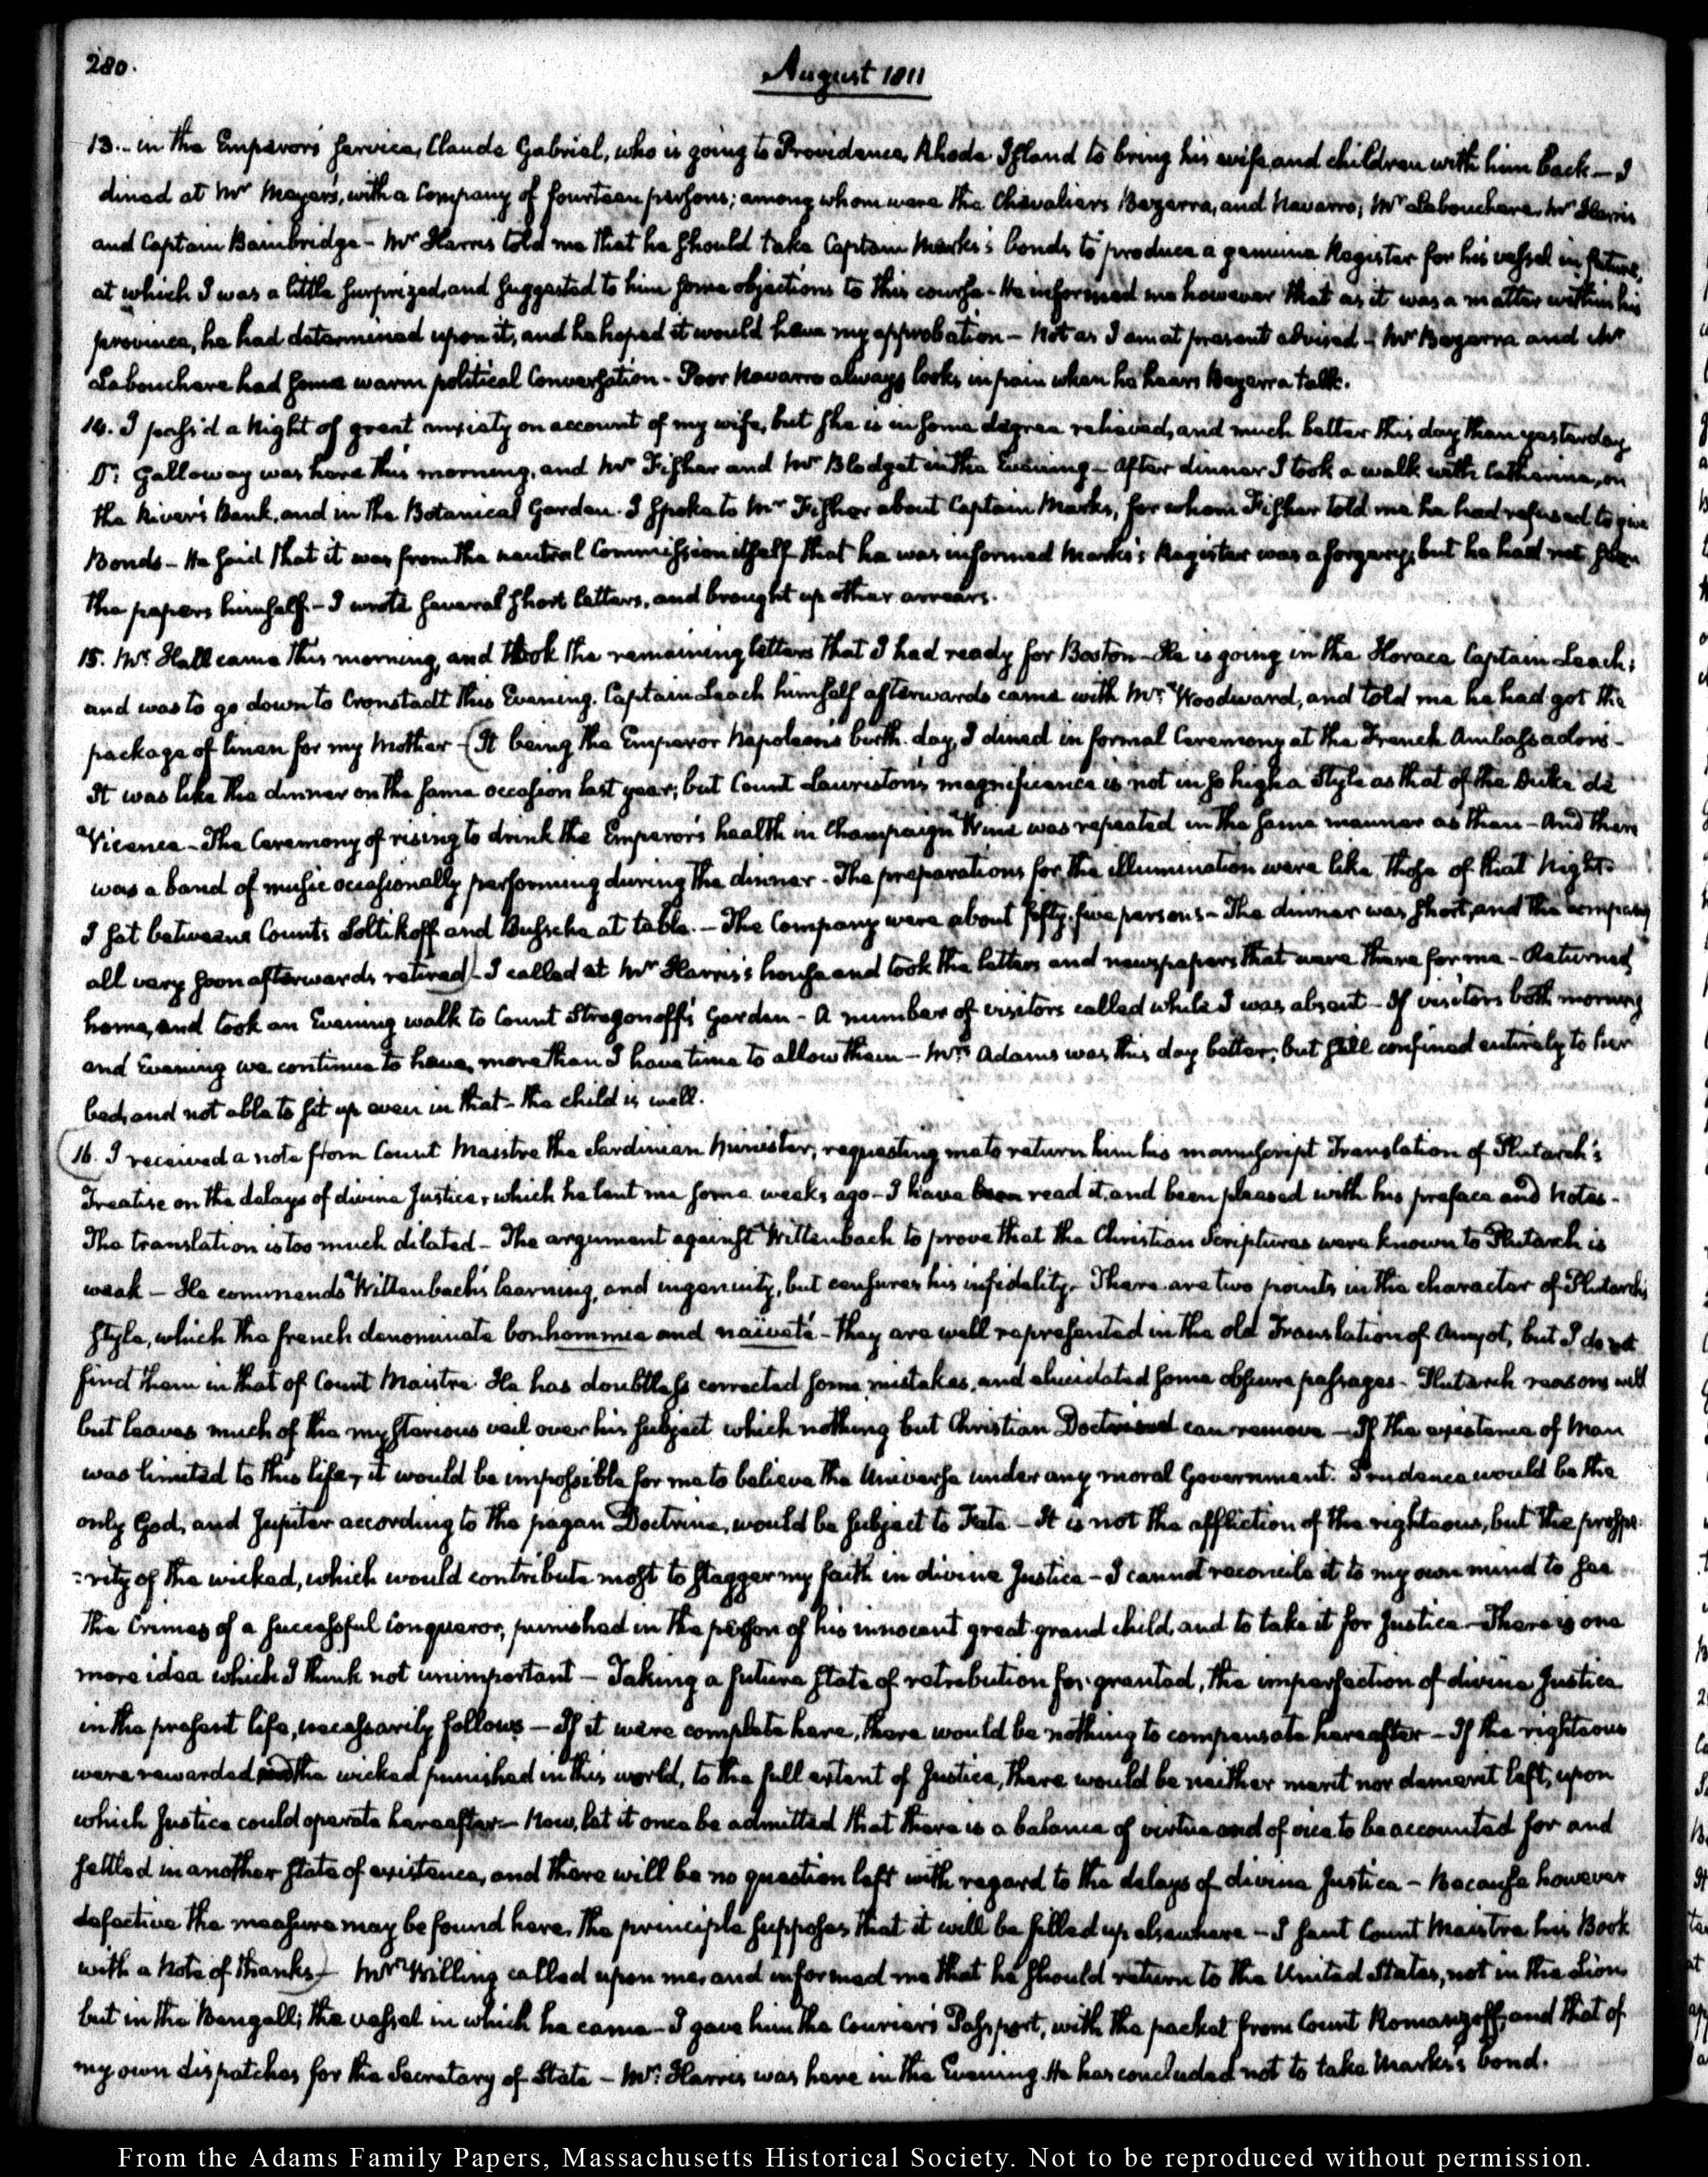 280.
August 1811
13.. in the Emperor's service, Claude Gabriel, who is going to Providence, Rhode Island to bring his wife and children with him back — I
dined at Mr Meyer's, with a Company of fourteen persons; among whom were the Chevaliers Bezerra, and Navarro; Mr Labouchere, Mr Harris
and Captain Bainbridge — Mr Harris told me that he should take Captain Marks's bonds to produce a genuine Register for his vessel in future,
at which I was a little surprized, and suggested to him some objections to this course — He informed me however that as it was a matter within his
province, he had determined upon it, and he hoped it would have my approbation — Not as I am at present advised — Mr Bezerra and Mr
Labouchere had some warm political Conversation — Poor Navarro always looks in pain when he hears Bezerra talk.
14. I pass'd a Night of great anxiety on account of my wife, but she is in some degree relieved, and much better this day than yesterday
Dr Galloway was here this morning, and Mr Fisher and Mr Blodget in the Evening — After dinner I took a walk with Catherine, on
the River's Bank, and in the Botanical Garden. I spoke to Mr Fisher about Captain Marks, for whom Fisher told me he had refused to give
Bonds — He said that it was from the neutral Commission itself that he was informed Marks's Register was a forgery; but he had not seen
the papers himself — I wrote several short letters, and brought up other arrears.
15. Mr Hall came this morning, and took the remaining letters that I had ready for Boston — He is going in the Horace Captain Leach;
and was to go down to Cronstadt this Evening. Captain Leach himself afterwards came with Mr Woodward, and told me he had got the
package of linen for my Mother — (It being the Emperor Napoleon's birth-day, I dined in formal Ceremony at the French Ambassador's —
It was like the dinner on the same occasion last year; but Count Lauriston's magnificence is not in so high a style as that of the Duke de
Vicence — The Ceremony of rising to drink the Emperor's health in Champaign Wine was repeated in the same manner as then — And there
was a band of music occasionally performing during the dinner — The preparations for the illumination were like those of that Night.
I sat between Counts Soltikoff and Bussche at table. — The Company were about fifty-five persons — The dinner was short, and the company
all very soon afterwards retired) — I called at Mr Harris's house and took the letters and newspapers that were there for me — Returned
home, and took an Evening walk to Count Strogonoff's Garden — A number of visitors called while I was absent — Of visitors both morning
and Evening we continue to have, more than I have time to allow them — Mrs Adams was this day better; but still confined entirely to her
bed, and not able to sit up even in that — the child is well.
(16. I received a note from Count Maistre the Sardinian Minister, requesting me to return him his manuscript Translation of Plutarch's
Treatise on the delays of divine Justice, which he lent me some weeks ago — I have read it, and been pleased with his preface and Notes —
The translation is too much dilated — The argument against Wittenbach to prove that the Christian Scriptures were known to Plutarch is
weak — He commends Wittenbach's learning, and ingenuity, but censures his infidelity — There are two points in the character of Plutarch's
style, which the french denominate bonhommie and naïveté — they are well represented in the old Translation of Amyot, but I do not
find them in that of Count Maistre. He has doubtless corrected some mistakes, and elucidated some obscure passages — Plutarch reasons well
but leaves much of the mysterious veil over his subject which nothing but Christian Doctrine can remove — If the existence of Man
was limited to this life, it would be impossible for me to believe the Universe under any moral Government. Prudence would be the
only God, and Jupiter according to the pagan Doctrine, would be subject to Fate — It is not the affliction of the righteous, but the prospe:
:rity of the wicked, which would contribute most to stagger my faith in divine Justice — I cannot reconcile it to my own mind to see
the Crimes of a successful Conqueror, punished in the person of his innocent great grand child, and to take it for Justice — There is one
more idea which I think not unimportant — Taking a future state of retribution for granted, the imperfection of divine Justice
in the present life, necessarily follows — If it were complete here, there would be nothing to compensate hereafter — If the righteous
were rewarded and the wicked punished in this world, to the full extent of Justice, there would be neither merit nor demerit left, upon
which Justice could operate hereafter — Now, let it once be admitted that there is a balance of virtue and of vice to be accounted for and
settled in another state of existence, and there will be no question left with regard to the delays of divine Justice — Because however
defective the measure may be found here, the principle supposes that it will be filled up elsewhere — I sent Count Maistre his Book
with a Note of thanks) — Mr Willing called upon me, and informed me that he should return to the United States, not in the Lion
but in the Bengall; the vessel in which he came — I gave him the Courier's Passport, with the packet from Count Romanzoff, and that of
my own dispatches for the Secretary of State — Mr Harris was here in the Evening. He has concluded not to take Marks's bond.
From the Adams Family Papers, Massachusetts Historical Society. Not to be reproduced without permission.